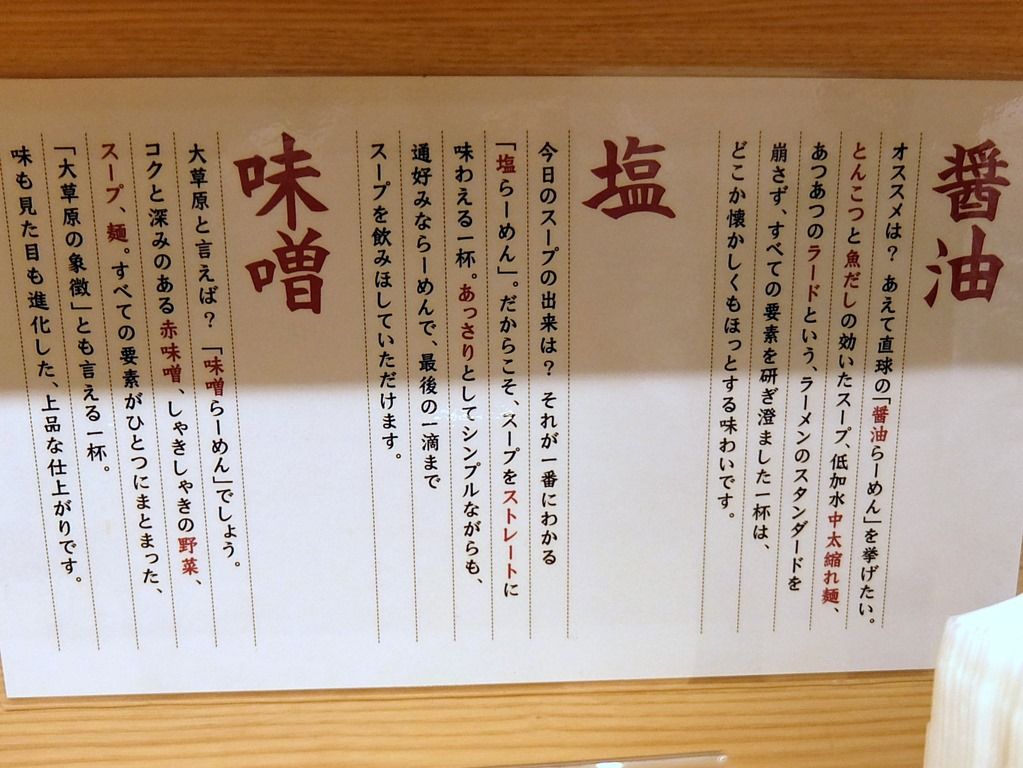 醤油
オススメは？ あえて直球の「醤油らーめん」を挙げたい。
とんこつと魚だしの効いたスープ、低加水中太縮れ麺、
あつあつのラードという、ラーメンのスタンダードを
崩さず、すべての要素を研ぎ澄ました一杯は、
どこか懐かしくもほっとする味わいです。
塩
今日のスープの出来は？ それが一番にわかる
「塩らーめん」。だからこそ、スープをストレートに
味わえる一杯。あっさりとしてシンプルながらも、
通好みならーめんで、最後の一滴まで
スープを飲みほしていただけます。
味噌
大草原と言えば？ 「味噌らーめん」でしょう。
コクと深みのある赤味噌、しゃきしゃきの野菜、
スープ、麺。すべての要素がひとつにまとまった、
「大草原の象徴」とも言える一杯。
味も見た目も進化した、上品な仕上がりです。